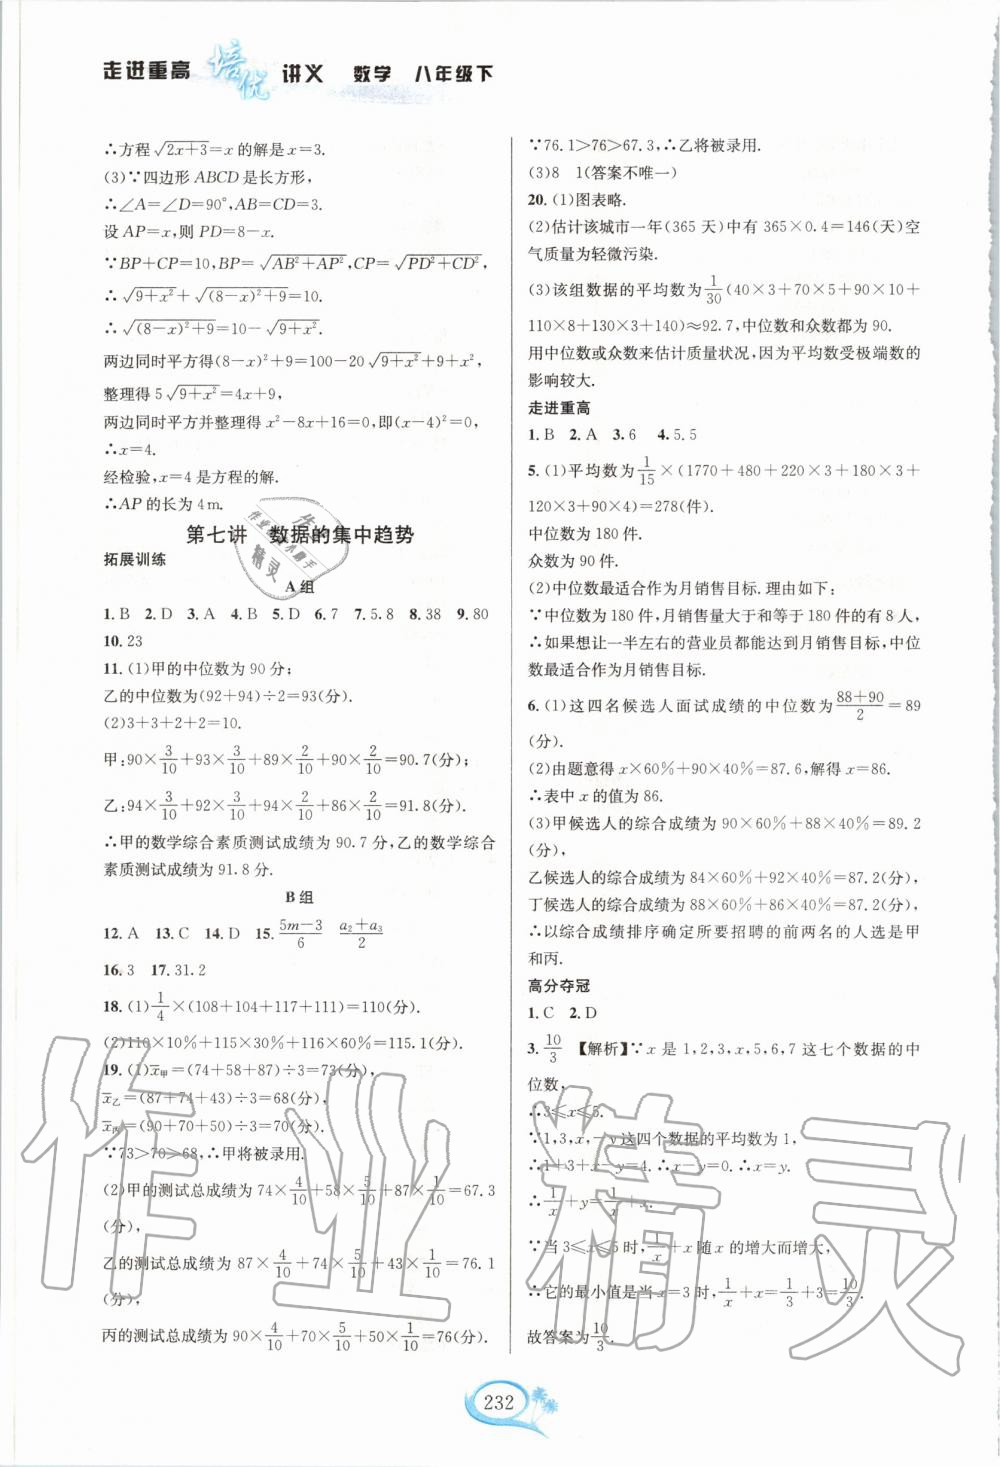 走进重高 培优 讲义 数学 八年级下
∴方程√(2x+3)=x的解是x=3.
(3)∵四边形ABCD是长方形,
∴∠A=∠D=90°,AB=CD=3.
设AP=x,则PD=8-x.
∵BP+CP=10,BP=√(AB²+AP²),CP=√(PD²+CD²),
∴√(9+x²)+√((8-x)²+9)=10.
∴√((8-x)²+9)=10-√(9+x²).
两边同时平方得(8-x)²+9=100-20√(9+x²)+9+x²,
整理得5√(9+x²)=4x+9,
两边同时平方并整理得x²-8x+16=0,即(x-4)²=0,
∴x=4.
经检验,x=4是方程的解.
∴AP的长为4m.
第七讲 数据的集中趋势
拓展训练
A组
1.B 2.D 3.A 4.B 5.D 6.7 7.5.8 8.38 9.80
10.23
11.(1)甲的中位数为90分;
乙的中位数为(92+94)÷2=93(分).
(2)3+3+2+2=10.
甲:90×3/10+93×3/10+89×2/10+90×2/10=90.7(分);
乙:94×3/10+92×3/10+94×2/10+86×2/10=91.8(分).
∴甲的数学综合素质测试成绩为90.7分,乙的数学综合
素质测试成绩为91.8分.
B组
12.A 13.C 14.D 15.(5m-3)/6 (a₂+a₃)/2
16.3 17.31.2
18.(1)1/4×(108+104+117+111)=110(分).
(2)110×10%+115×30%+116×60%=115.1(分).
19.(1)x̄甲=(74+58+87)÷3=73(分),
x̄乙=(87+74+43)÷3=68(分),
x̄丙=(90+70+50)÷3=70(分).
∵73>70>68,∴甲将被录用.
(2)甲的测试总成绩为74×4/10+58×5/10+87×1/10=67.3
(分),
乙的测试总成绩为87×4/10+74×5/10+43×1/10=76.1
(分),
丙的测试总成绩为90×4/10+70×5/10+50×1/10=76(分).
∵76.1>76>67.3,∴乙将被录用.
(3)8 1(答案不唯一)
20.(1)图表略.
(2)估计该城市一年(365天)中有365×0.4=146(天)空
气质量为轻微污染.
(3)该组数据的平均数为1/30(40×3+70×5+90×10+
110×8+130×3+140)≈92.7,中位数和众数都为90.
用中位数或众数来估计质量状况,因为平均数受极端数的
影响较大.
走进重高
1.B 2.A 3.6 4.5.5
5.(1)平均数为1/15×(1770+480+220×3+180×3+
120×3+90×4)=278(件).
中位数为180件.
众数为90件.
(2)中位数最适合作为月销售目标.理由如下:
∵中位数为180件,月销售量大于和等于180件的有8人,
∴如果想让一半左右的营业员都能达到月销售目标,中位
数最适合作为月销售目标.
6.(1)这四名候选人面试成绩的中位数为(88+90)/2=89
(分).
(2)由题意得x×60%+90×40%=87.6,解得x=86.
∴表中x的值为86.
(3)甲候选人的综合成绩为90×60%+88×40%=89.2
(分),
乙候选人的综合成绩为84×60%+92×40%=87.2(分),
丁候选人的综合成绩为88×60%+86×40%=87.2(分),
∴以综合成绩排序确定所要招聘的前两名的人选是甲
和丙.
高分夺冠
1.C 2.D
3.10/3 【解析】∵x是1,2,3,x,5,6,7这七个数据的中
位数,
∴3≤x≤5.
∵1,3,x,-y这四个数据的平均数为1,
∴1+3+x-y=4.∴x-y=0.∴y=x.
∴1/x+y=1/x+x.
∵当3≤x≤5时,1/x+x随x的增大而增大,
∴它的最小值是当x=3时,1/x+x=1/3+3=10/3.
故答案为10/3.
232
作业精灵